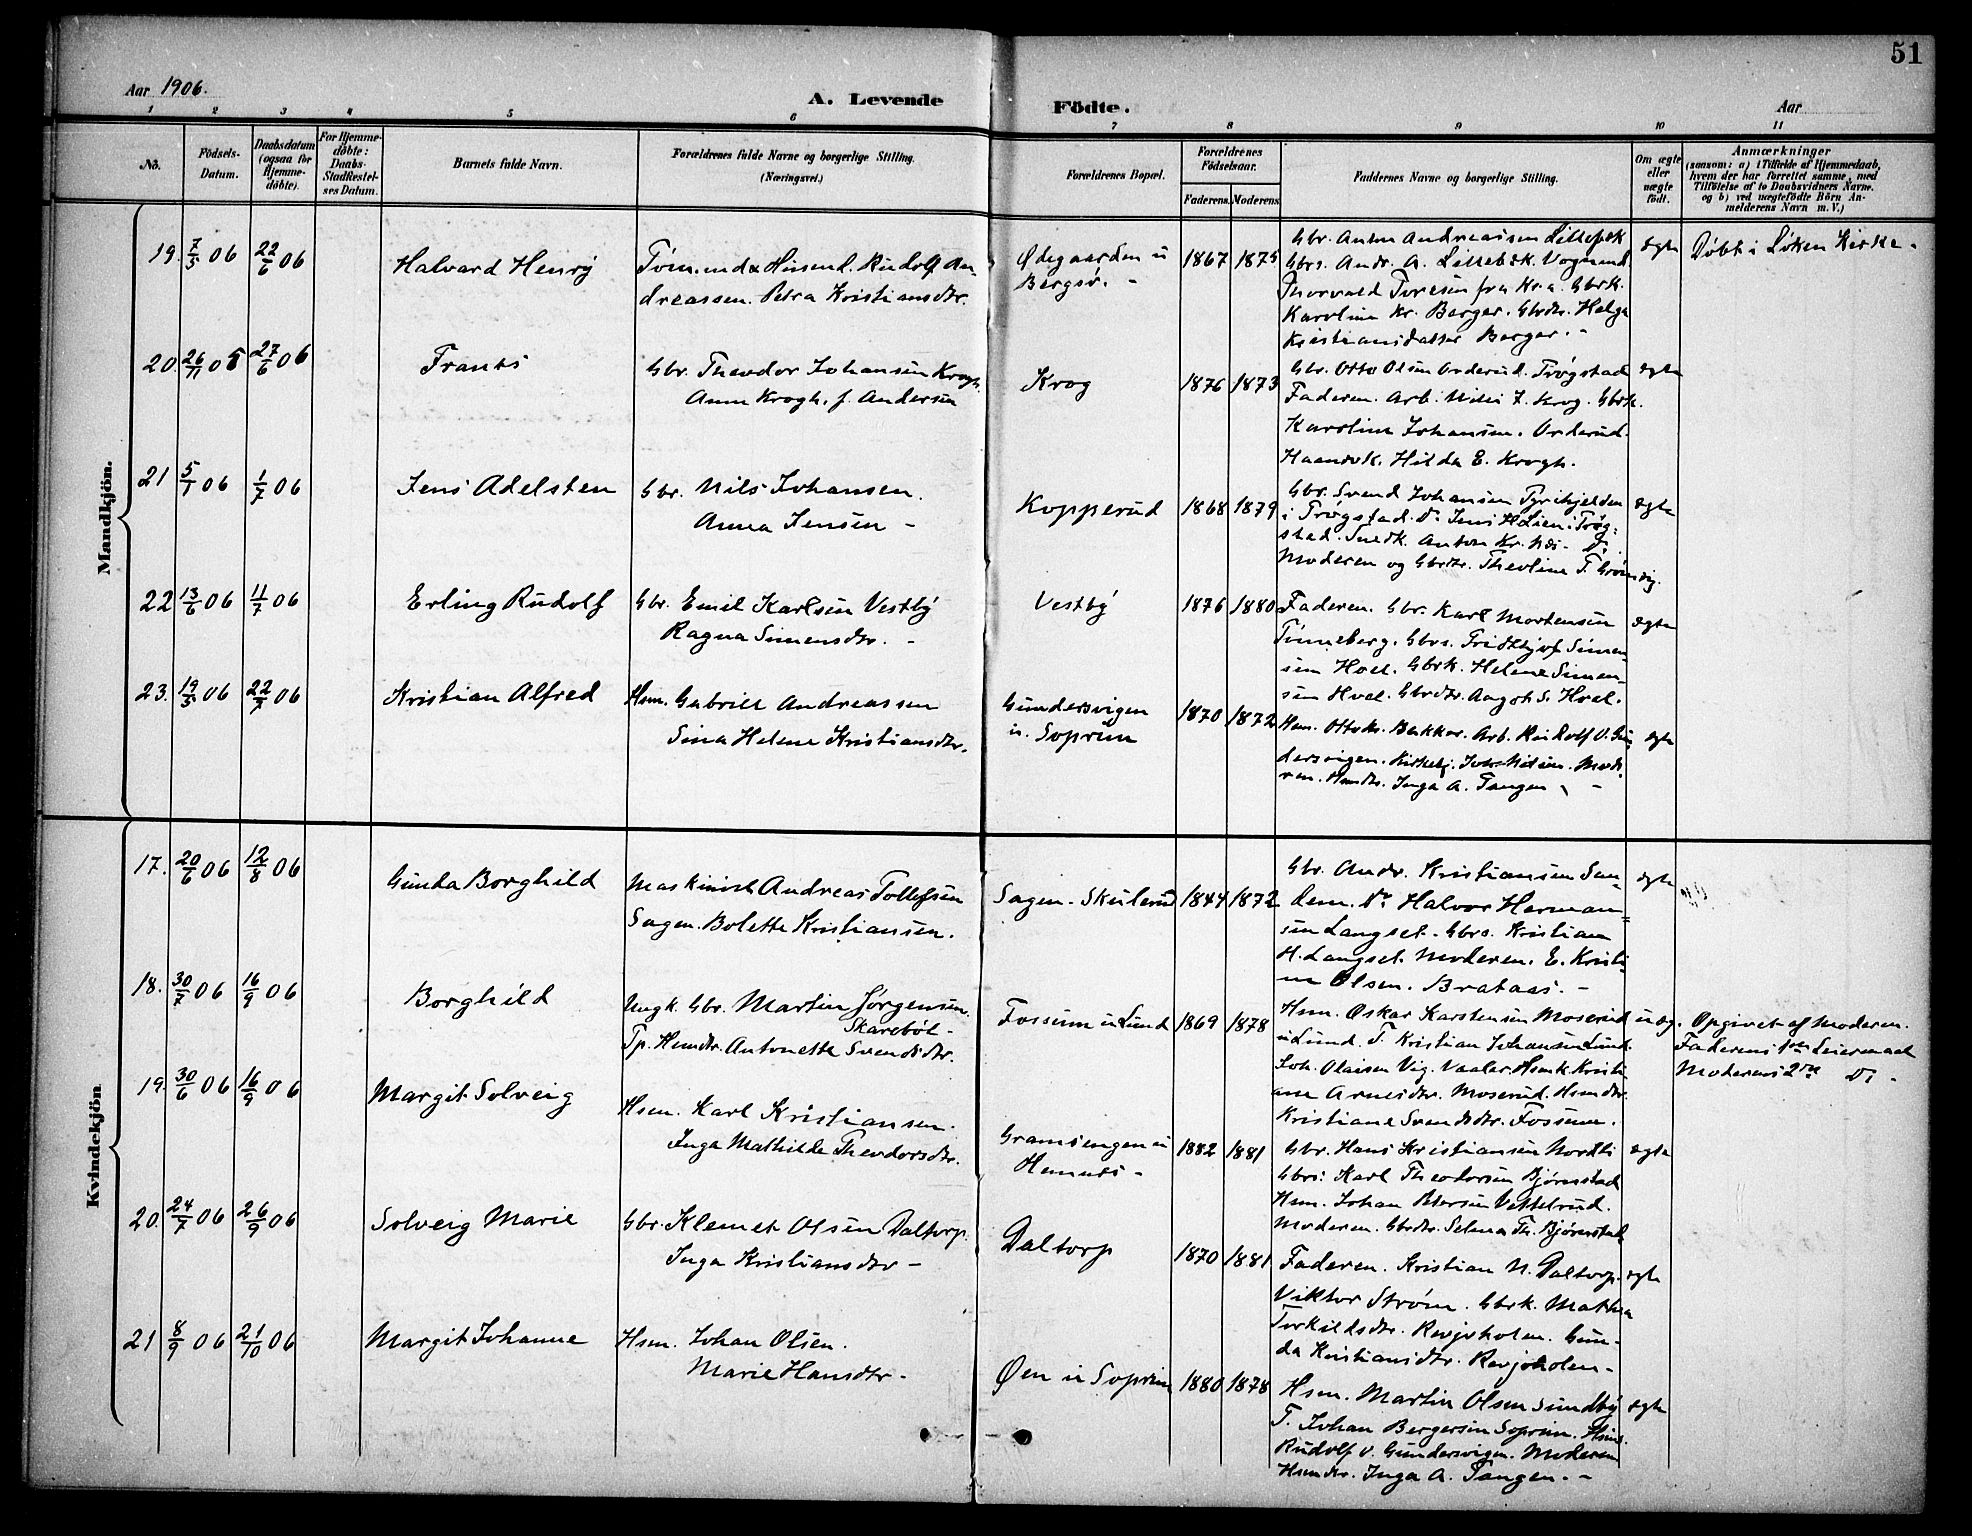 51
Aar 1906.
A. Levende Födte.
Aar
1 2 3 4 5 6 7 8 9 10 11
No.
Födsels-
Datum.
Daabsdatum
(ogsaa for
Hjemme-
döbte).
For Hjemme-
döbte:
Daabs-
Stadfæstel-
ses Datum.
Barnets fulde Navn.
Forældrenes fulde Navne og borgerlige Stilling.
(Næringsvei.)
Forældrenes Bopæl.
Forældrenes
Födselsaar.
Faderens. Moderens.
Faddernes Navne og borgerlige Stilling.
Om ægte
eller
uægte
födt.
Anmærkninger
(saasom: a) i Tilfælde af Hjemmedaab,
hvem der har forrettet samme, med
Tilföielse af to Daabsvidners Navne.
og b) ved uægtefödte Börn An-
melderens Navn m. V.)
Mandkjön.
19. 7/5 06 22/6 06
Halvard Henry
Rudolf An-
dreassen. Petra Kristiansdtr.
Ødegaarden u
Bergsø. -
1867 1875
Gbr. Anton Andreassen Lillebæk
Gbrs. Andr. A. Lillebæk. Vognmd
Thorvald Toresen fra Kr.a. Gbrk.
Karoline Kr. Berger. Gbrdtr. Helga
Kristiansdatter Berger. -
ægte
Døbt i Løken Kirke.
20. 26/11 05 27/6 06
Frants
Gbr. Theodor Johansen Krogh
Anna Krogh, f. Andersen
Krog
1876 1873
Gbr. Otto Olsen Orderud. Trøgstad
Faderen. Arb. Nils J. Krog. Gbrk.
Karoline Johansen. Orderud.
Haandv. Hilda E. Krogh.
ægte
21 5/1 06 1/7 06
Jens Adelsten
Gbr. Nils Johansen.
Anna Jensen -
Kopperud
1868 1879
Gbr. Svend Johansen Tyrihjelden
i Trøgstad. Do Jens H Lien i Trøg-
stad. Snedk. Anton Kr. Næs. Do.
Moderen og Gbrdtr. Theoline T. Grønvig.
ægte
22 13/6 06 11/7 06
Erling Rudolf
Gbr. Emil Karlsen Vestby
Ragna Simensdtr. -
Vestby
1876 1880
Faderen. Gbr. Karl Mortensen
Tønneberg. Gbrs. Fridthjof Simen-
sen Hoel. Gbrk. Helene Simen-
sen Hoel. Gbrdtr. Aagot S. Hoel.
ægte
23. 19/5 06 22/7 06
Kristian Alfred
Hsm. Gabriel Andreassen
Sina Helene Kristiansdtr.
Gundersvigen
u. Soprim
1870 1872
Hsm. Otto Kr. Bakker. Arb. Rudolf O. Gun-
dersvigen. Kirkebj. Joh. Nilsen. Mode-
ren. Hsmdtr. Inga A. Tangen -
ægte
Kvindekjön
17. 20/6 06 12/8 06
Gunda Borghild
Maskinist Andreas Tollefsen
Sagen. Bolette Kristiansen.
Sagen - Skulerud
1844 1872
Gbr. Andr. Kristiansen San-
dem. Do Halvor Herman-
sen Langset. Gbrs. Kristian
H. Langset. Moderen. E. Kristi-
ne Olsen. Brataas. -
ægte
18. 30/7 06 16/9 06
Borghild
Ungk. Gbr. Martin Jørgensen.
Skarebøl -
Tp. Hsmdtr. Antonette Svendsdtr.
Fossum u Lund
1869 1878
Hsm. Oskar Karstensen Moserud
u Lund. T. Kristian Johansen Lund.
Joh. Olaisen Vig. Vaaler. Hsmk. Kristi-
ane Arnesdtr. Moserud. Hsmdtr.
Kristiane Svendsdtr. Fossum.
uæg.
Opgivet af Moderen.
Faderens 1ste Leiermaal
Moderens 2det Do -
19. 30/6 06 16/9 06
Margit Solveig
Hsm. Karl Kristiansen.
Inga Mathilde Theodorsdtr.
Gramsengen u
Hemnes -
1882 1881
Gbr. Hans Kristiansen Nordli
Gbrs. Karl Theodorsen Bjørnstad
Hsm. Johan Petersen Vettelrud.
Moderen. Gbrdtr. Selma Th. Bjørnstad
ægte
20. 24/7 06 26/9 06
Solveig Marie
Gbr. Klemet Olsen Daltorp.
Inga Kristiansdtr -
Daltorp
1870 1881
Faderen. Kristian N. Daltorp.
Viktor Strøm. Gbrk. Mathea
Torkildsdtr. Revjeholen. Gun-
da Kristiansdtr. Revjeholen -
ægte
21 8/9 06 21/10 06
Margit Johanne
Hsm. Johan Olsen.
Marie Hansdtr -
Øen u Soprim
1880 1878
Hsm. Martin Olsen Sundby
T. Johan Bergersen Soprim. Hsms.
Rudolf O. Gundersvigen. Moderen
Hsmdtr. Inga A. Tangen. -
ægte